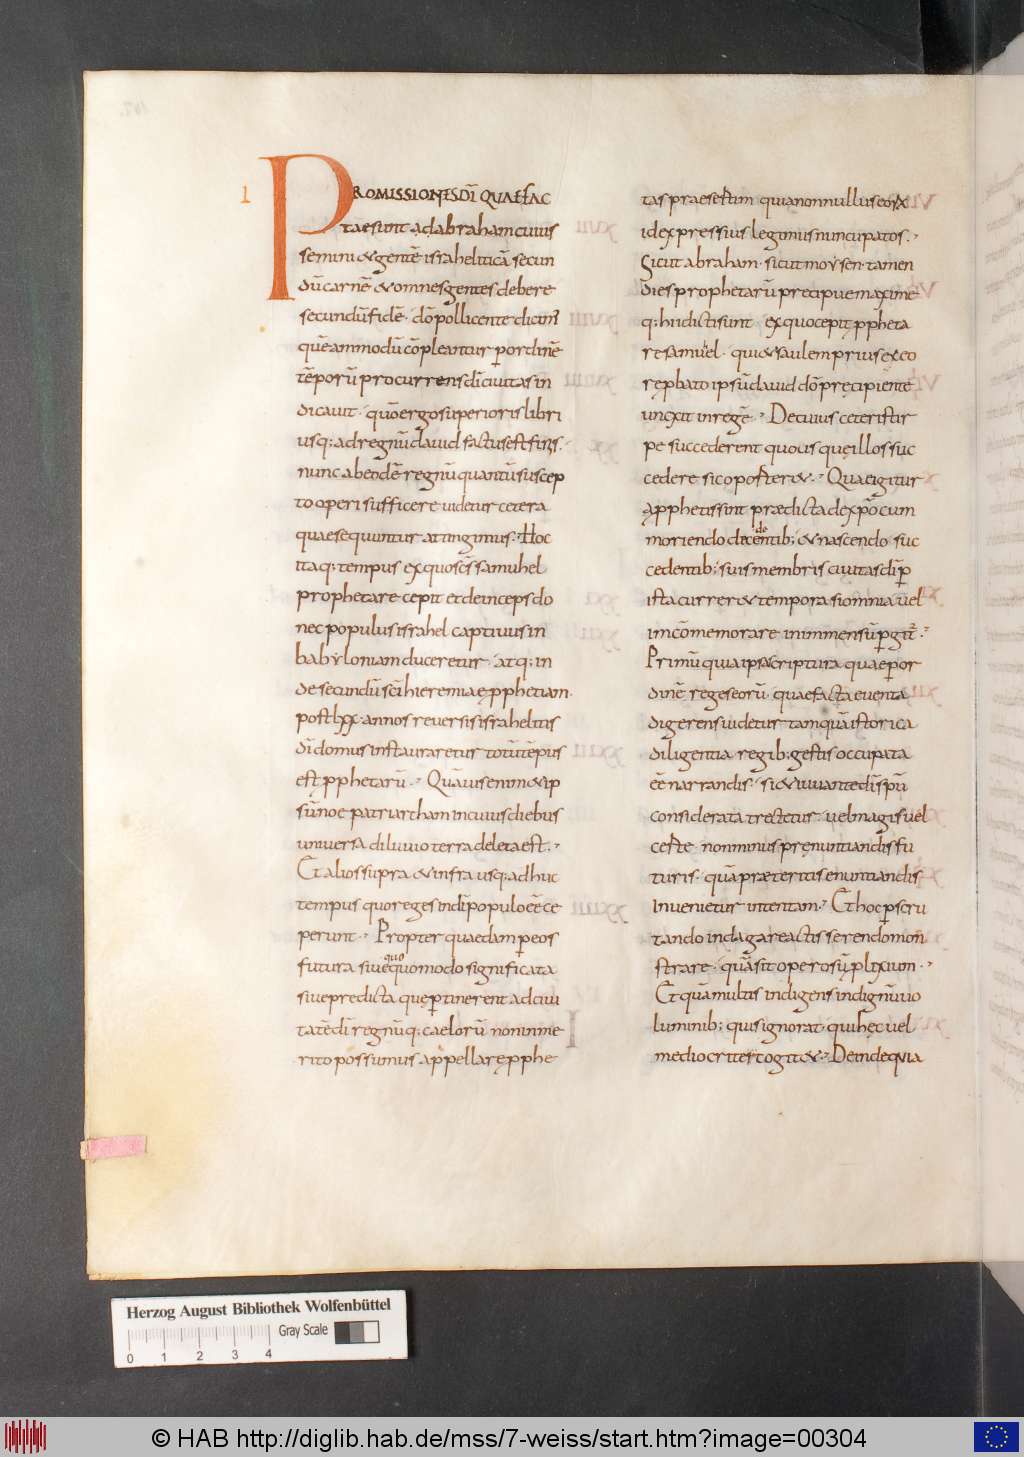 I
PROMISSIONES DĪ QUAE FAC
tae sunt ad abraham cuius
semini & gentē israheliticā secun
dū carnē & omnes gentes debere
secundū fidē· dō pollicente dicim᾽
quēammodū cōpleantur per ordinē
tēporū procurrens dī ciuitas in
dicauit· quō ergo superioris libri
usq; ad regnū dauid factus est finis·
nunc ab eodē regnū quantū suscep
to operi sufficere uidetur cetera
quae sequuntur attingimus·, Hoc
itaq; tempus ex quo scs samuhel
prophetare cepit et deinceps do
nec populus israhel captiuus in
babyloniam duceretur· atq; in
de secundū sci hieremiae pphetiam·
post lxx· annos reuersis israhelitis
dī domus instauraretur totū tēpus
est pphetarū·, Quāuis enim & ip
sū noe patriarcham in cuius diebus
uniuersa diluuio terra deleta est·,
Et alios supra & infra usq; ad huc
tempus quo reges in dī populo eē ce
perunt·, Propter quaedam p eos
futura siue quoquomodo significata
siue predicta que ptinerent ad ciui
tatē dī regnūq; caelorū non inme
rito possumus appellare pphe
tas praesertim quia nonnullus eorx
id expressius legimus nuncupatos·,
Sicut abraham· sicut moysen· tamen
dies prophetarū precipue maxime
q; hii dicti sunt ex quo cepit ppheta
re samuel· qui & saulem prius & eo
repbato ipsū dauid dō precipiente
unxit in regē·, De cuius ceteri stir
pe succederent quo is que illos suc
cedere sic oporter&·, Quae igitur
a pphetis sint praedicta de xpō cum
moriendo decedentib; & nascendo suc
cedentib; suis membris ciuitas dī p
ista currer& tempora si omnia uel
im cōmemorare in inmensū pgit̄·,
Primū quia ipsa scriptura quae por
dinē reges eorū quae facta euenta
digerens uidetur tamquā istorica
diligentia regib; gestis occupata
eē narrandis· si & iuuante dī spū
considerata trectetur uel magis uel
certe non minus prenuntiandis fu
turis· quā praeteritis enuntiandis
inuenietur intentam·, Et hoc pscru
tando indagare actis serendo mon
strare· quā sit operosū plixium·,
Et quā multis indigens indignū uo
luminib; quis ignorat· qui hec uel
mediocriter cogit&·, Deinde quia
Herzog August Bibliothek Wolfenbüttel
Gray Scale
0 1 2 3 4
© HAB http://diglib.hab.de/mss/7-weiss/start.htm?image=00304